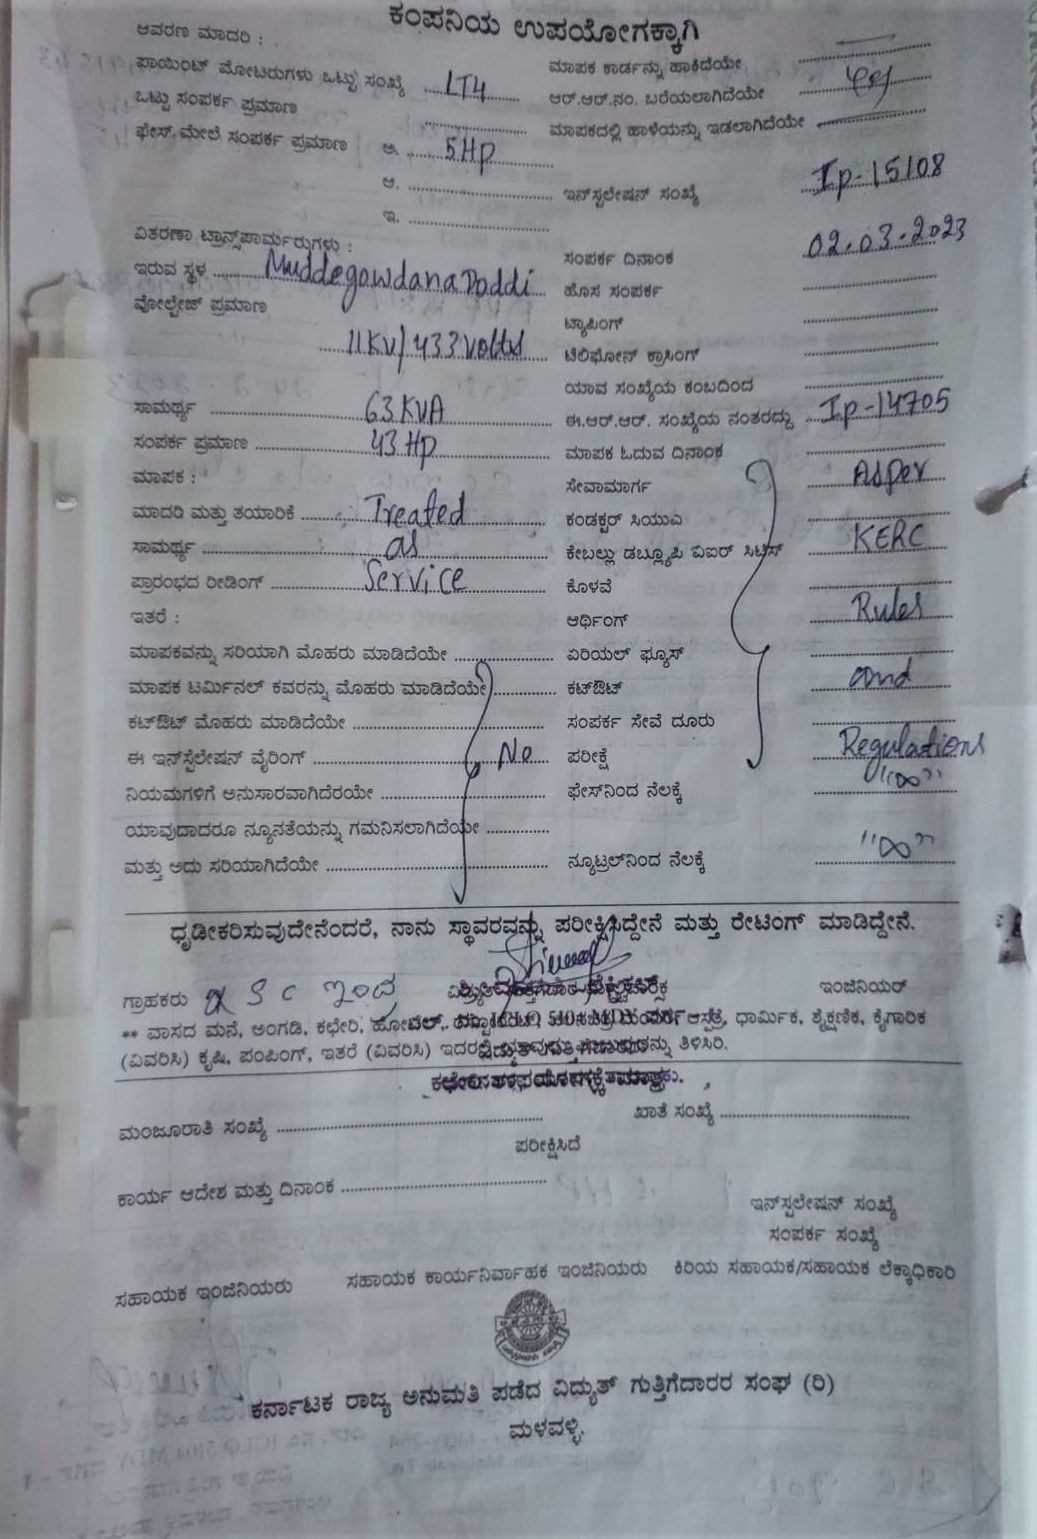 ಕಂಪನಿಯ ಉಪಯೋಗಕ್ಕಾಗಿ
ಆವರಣ ಮಾದರಿ :
ಪಾಯಿಂಟ್ ಮೋಟರುಗಳು ಒಟ್ಟು ಸಂಖ್ಯೆ LT4 ಮಾಪಕ ಕಾರ್ಡನ್ನು ಹಾಕಿದೆಯೇ
ಒಟ್ಟು ಸಂಪರ್ಕ ಪ್ರಮಾಣ ಆರ್.ಆರ್.ನಂ. ಬರೆಯಲಾಗಿದೆಯೇ
ಫೇಸ್ ಮೇಲೆ ಸಂಪರ್ಕ ಪ್ರಮಾಣ ಅ. 5Hp ಮಾಪಕದಲ್ಲಿ ಹಾಳೆಯನ್ನು ಇಡಲಾಗಿದೆಯೇ
ಆ. ಇನ್‌ಸ್ಟಲೇಷನ್ ಸಂಖ್ಯೆ Ip-15108
ಇ.
ವಿತರಣಾ ಟ್ರಾನ್ಸ್‌ಫಾರ್ಮರುಗಳು : ಸಂಪರ್ಕ ದಿನಾಂಕ 02.03.2023
ಇರುವ ಸ್ಥಳ MuddegowdanaDoddi ಹೊಸ ಸಂಪರ್ಕ
ವೋಲ್ಟೇಜ್ ಪ್ರಮಾಣ ಟ್ಯಾಪಿಂಗ್
11KV/433volts ಟೆಲಿಫೋನ್ ಕ್ರಾಸಿಂಗ್
ಯಾವ ಸಂಖ್ಯೆಯ ಕಂಬದಿಂದ
ಸಾಮರ್ಥ್ಯ 63KVA ಈ.ಆರ್.ಆರ್. ಸಂಖ್ಯೆಯ ನಂತರದ್ದು Ip-14705
ಸಂಪರ್ಕ ಪ್ರಮಾಣ 43Hp ಮಾಪಕ ಓದುವ ದಿನಾಂಕ
ಮಾಪಕ : ಸೇವಾಮಾರ್ಗ Asper
ಮಾದರಿ ಮತ್ತು ತಯಾರಿಕೆ Treated ಕಂಡಕ್ಟರ್ ಸಿಯುಎ
ಸಾಮರ್ಥ್ಯ as ಕೇಬಲ್ಲು ಡಬ್ಲ್ಯೂಪಿ ವಿಐರ್ KERC
ಪ್ರಾರಂಭದ ರೀಡಿಂಗ್ Service ಕೊಳವೆ
ಇತರೆ : ಆರ್ಥಿಂಗ್ Rules
ಮಾಪಕವನ್ನು ಸರಿಯಾಗಿ ಮೊಹರು ಮಾಡಿದೆಯೇ ಏರಿಯಲ್ ಫ್ಯೂಸ್
ಮಾಪಕ ಟರ್ಮಿನಲ್ ಕವರನ್ನು ಮೊಹರು ಮಾಡಿದೆಯೇ ಕಟ್‌ಔಟ್ and
ಕಟ್‌ಔಟ್ ಮೊಹರು ಮಾಡಿದೆಯೇ ಸಂಪರ್ಕ ಸೇವೆ ದೂರು
ಈ ಇನ್‌ಸ್ಟಲೇಷನ್ ವೈರಿಂಗ್ No ಪರೀಕ್ಷೆ Regulations
ನಿಯಮಗಳಿಗೆ ಅನುಸಾರವಾಗಿದೆರಯೇ ಫೇಸ್‌ನಿಂದ ನೆಲಕ್ಕೆ "∞"
ಯಾವುದಾದರೂ ನ್ಯೂನತೆಯನ್ನು ಗಮನಿಸಲಾಗಿದೆಯೇ
ಮತ್ತು ಅದು ಸರಿಯಾಗಿದೆಯೇ ನ್ಯೂಟ್ರಲ್‌ನಿಂದ ನೆಲಕ್ಕೆ "∞"
ಧೃಡೀಕರಿಸುವುದೇನೆಂದರೆ, ನಾನು ಸ್ಥಾವರವನ್ನು ಪರೀಕ್ಷಿಸಿದ್ದೇನೆ ಮತ್ತು ರೇಟಿಂಗ್ ಮಾಡಿದ್ದೇನೆ.
ಗ್ರಾಹಕರು ಇಂಜಿನಿಯರ್
** ವಾಸದ ಮನೆ, ಅಂಗಡಿ, ಕಛೇರಿ, ಹೋಟೆಲ್, ಆಸ್ಪತ್ರೆ, ಧಾರ್ಮಿಕ, ಶೈಕ್ಷಣಿಕ, ಕೈಗಾರಿಕ
(ವಿವರಿಸಿ) ಕೃಷಿ, ಪಂಪಿಂಗ್, ಇತರೆ (ವಿವರಿಸಿ) ತಿಳಿಸಿರಿ.
ಮಂಜೂರಾತಿ ಸಂಖ್ಯೆ ಖಾತೆ ಸಂಖ್ಯೆ
ಪರೀಕ್ಷಿಸಿದೆ
ಕಾರ್ಯ ಆದೇಶ ಮತ್ತು ದಿನಾಂಕ
ಇನ್‌ಸ್ಟಲೇಷನ್ ಸಂಖ್ಯೆ
ಸಂಪರ್ಕ ಸಂಖ್ಯೆ
ಸಹಾಯಕ ಇಂಜಿನಿಯರು ಸಹಾಯಕ ಕಾರ್ಯನಿರ್ವಾಹಕ ಇಂಜಿನಿಯರು ಕಿರಿಯ ಸಹಾಯಕ/ಸಹಾಯಕ ಲೆಕ್ಕಾಧಿಕಾರಿ
ಕರ್ನಾಟಕ ರಾಜ್ಯ ಅನುಮತಿ ಪಡೆದ ವಿದ್ಯುತ್ ಗುತ್ತಿಗೆದಾರರ ಸಂಘ (ರಿ)
ಮಳವಳ್ಳಿ.